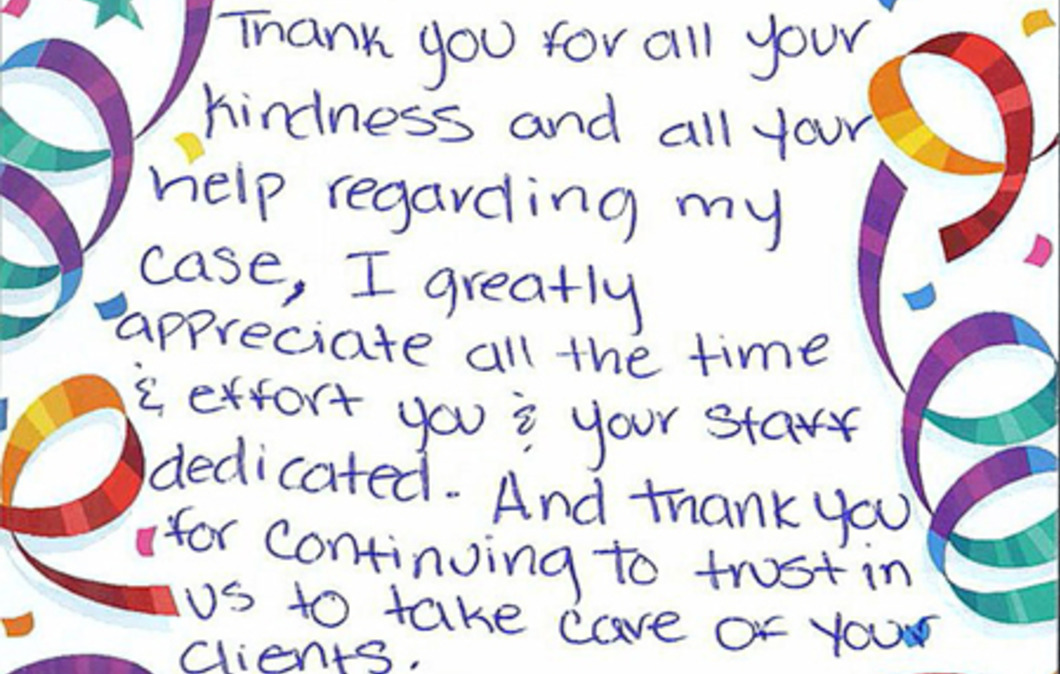 Thank you for all your
kindness and all your
help regarding my
case, I greatly
appreciate all the time
& effort you & your staff
dedicated. And thank you
for continuing to trust in
us to take care of your
clients.